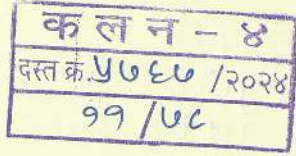 कलन - ४
दस्त क्र. ५७६७ /२०२४
११ /७८